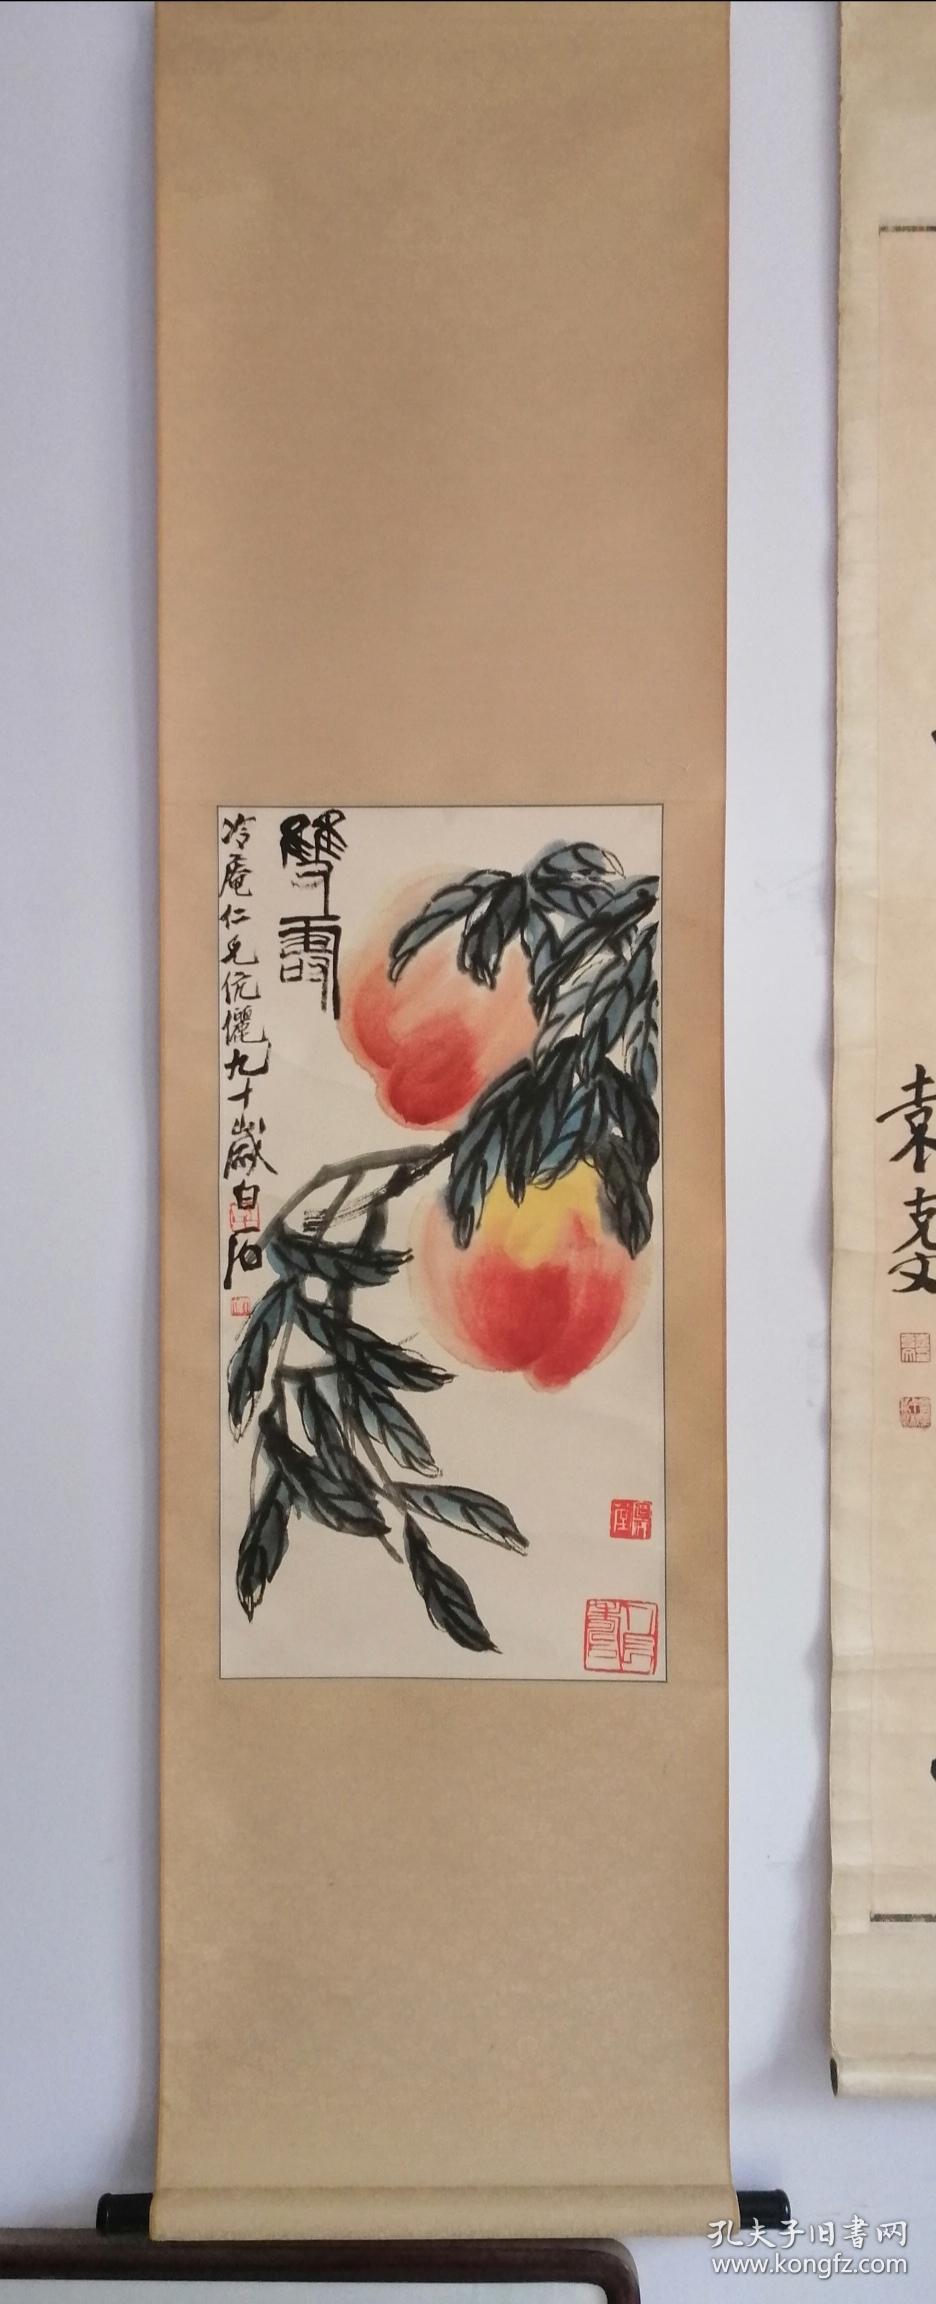 雙壽
冷庵仁兄伉儷九十歲白石
袁克文
孔夫子旧书网
www.kongfz.com